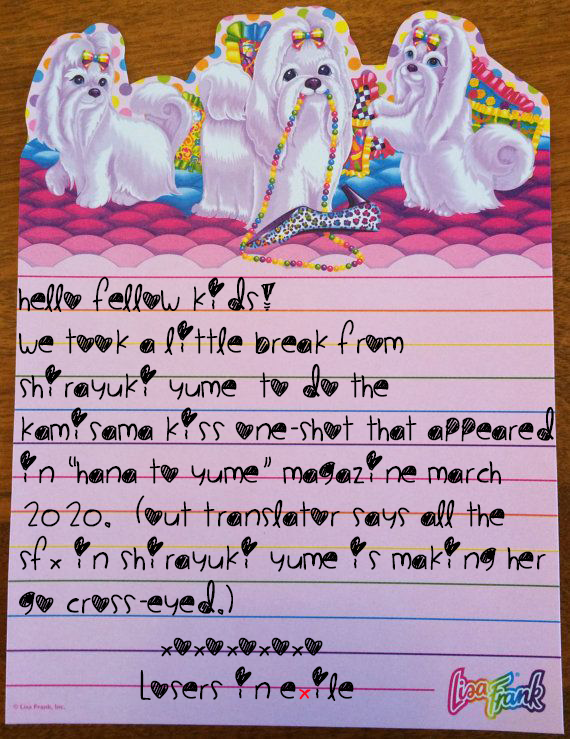 hello fellow kids!
we took a little break from
shirayuki yume to do the
kamisama kiss one-shot that appeared
in "hana to yume" magazine march
2020. (out translator says all the
sfx in shirayuki yume is making her
go cross-eyed.)
xoxoxoxoxo
Losers in exile
© Lisa Frank, Inc.
Lisa Frank®